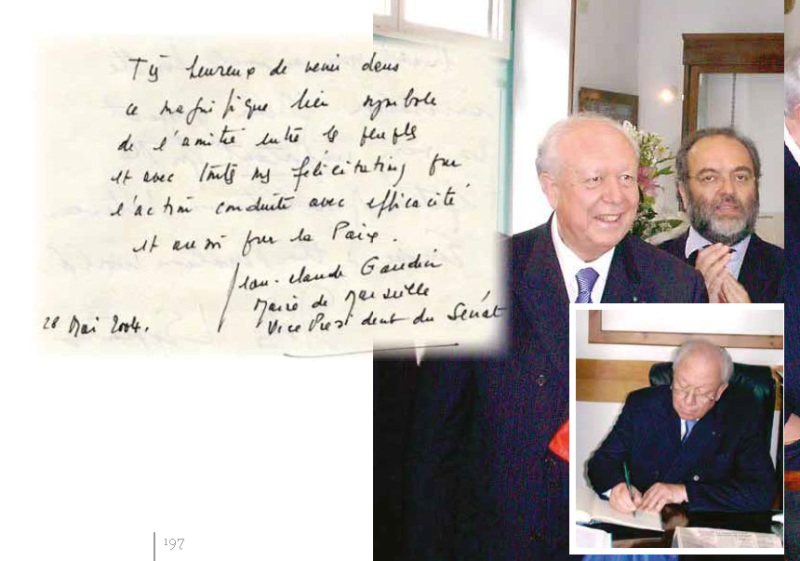 Très heureux de venir dans
ce magnifique lieu symbole
de l'amitié entre les peuples
et avec toutes mes félicitations pour
l'action conduite avec efficacité
et aussi pour la Paix.
Jean-Claude Gaudin
Maire de Marseille
Vice Président du Sénat
28 Mai 2004.
197